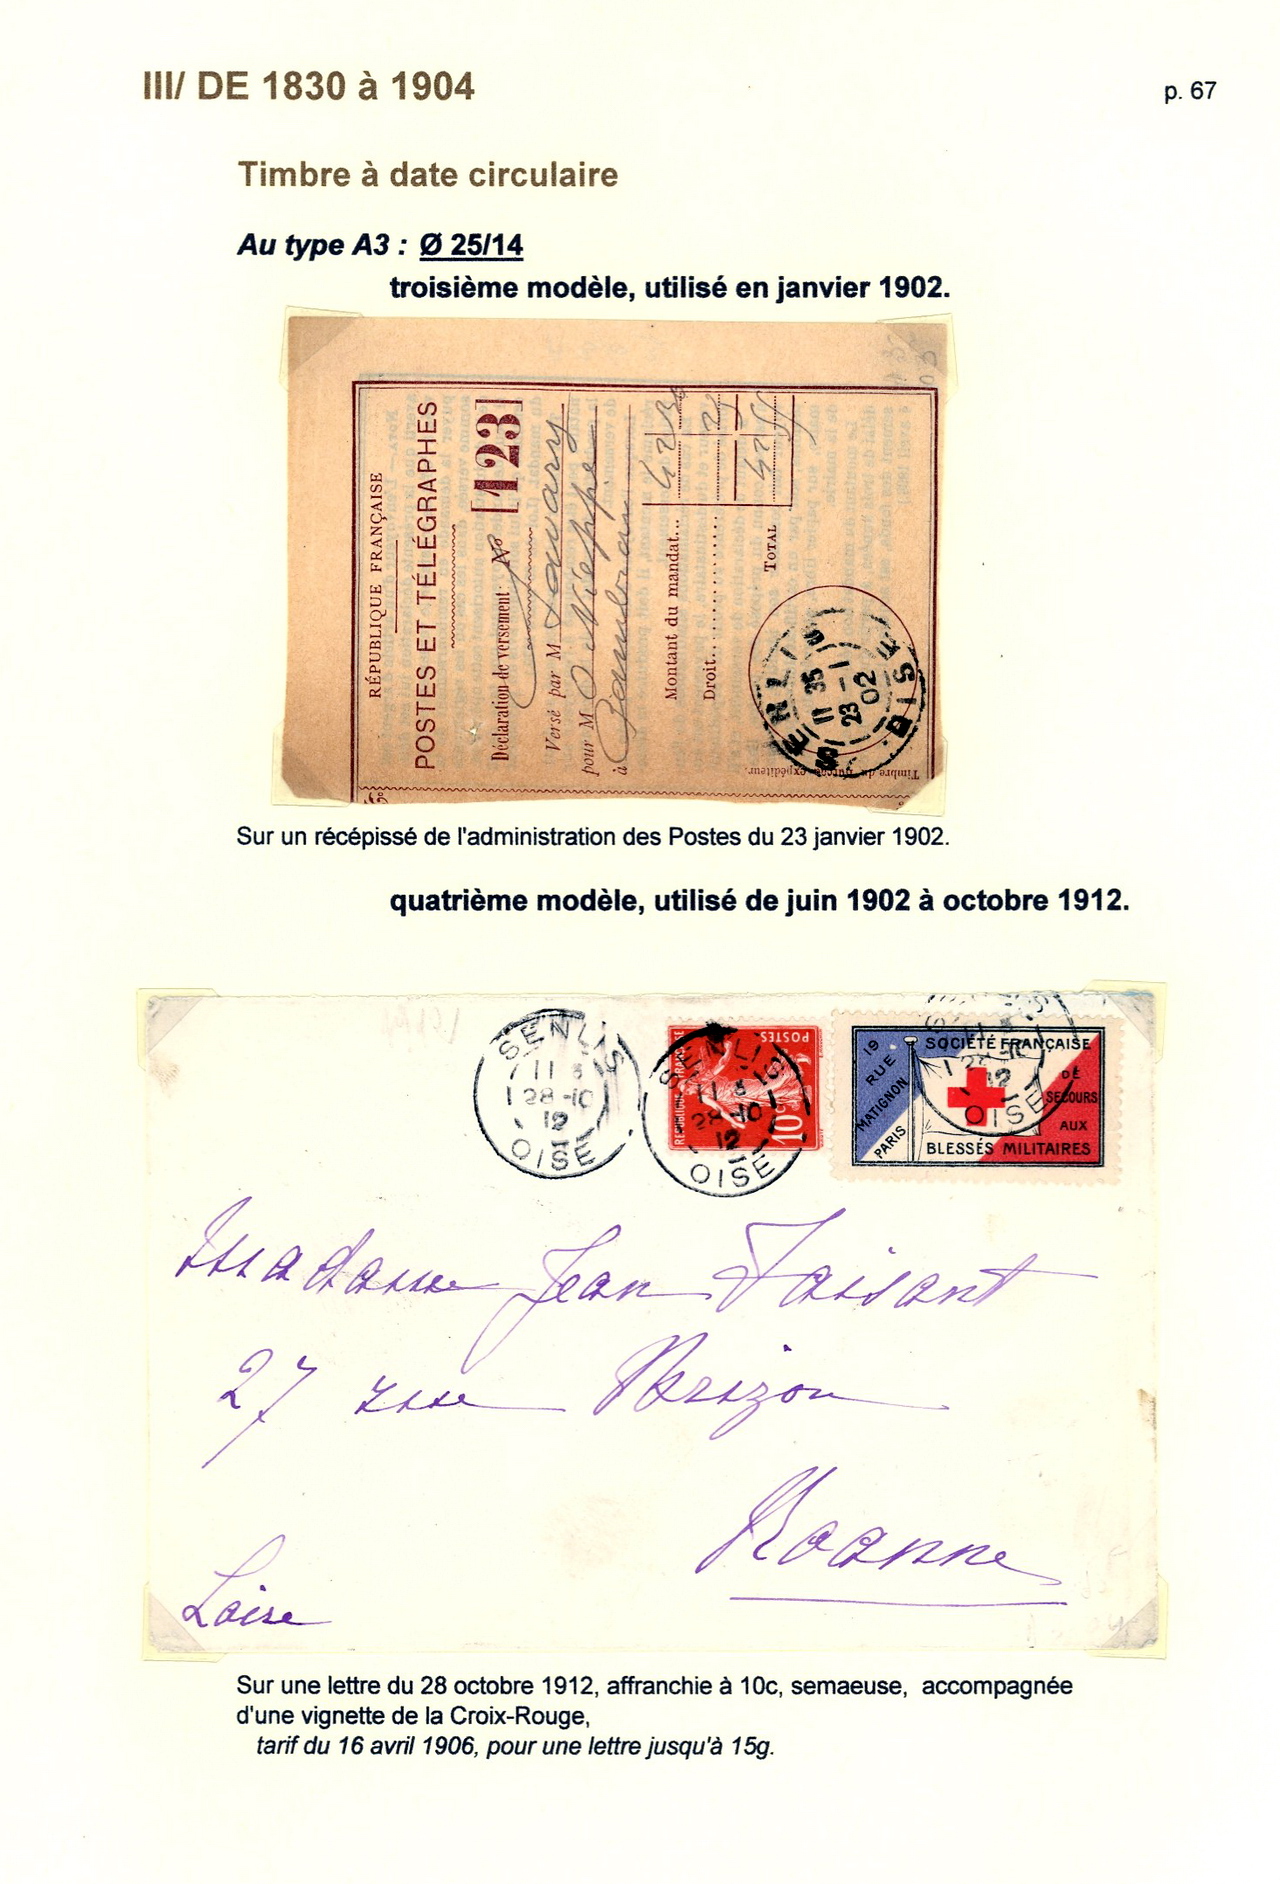 III/ DE 1830 à 1904
p. 67
Timbre à date circulaire
Au type A3 : Ø 25/14
troisième modèle, utilisé en janvier 1902.
RÉPUBLIQUE FRANÇAISE
POSTES ET TÉLÉGRAPHES
Déclaration de versement: N° 123
Versé par M
pour M
à
Montant du mandat...
Droit...
TOTAL
Timbre du bureau expéditeur.
SENLIS
11 35
23 -1
02
OISE
Sur un récépissé de l'administration des Postes du 23 janvier 1902.
quatrième modèle, utilisé de juin 1902 à octobre 1912.
SENLIS
11
28-10
12
OISE
POSTES
REPUBLIQUE FRANÇAISE
10c
SENLIS
11
28-10
12
OISE
19 RUE MATIGNON PARIS
SOCIÉTÉ FRANÇAISE
DE
SECOURS
AUX
BLESSÉS MILITAIRES
12
OISE
Madame Jean Faisant
27 rue
Roanne
Loire
Sur une lettre du 28 octobre 1912, affranchie à 10c, semaeuse, accompagnée
d'une vignette de la Croix-Rouge,
tarif du 16 avril 1906, pour une lettre jusqu'à 15g.